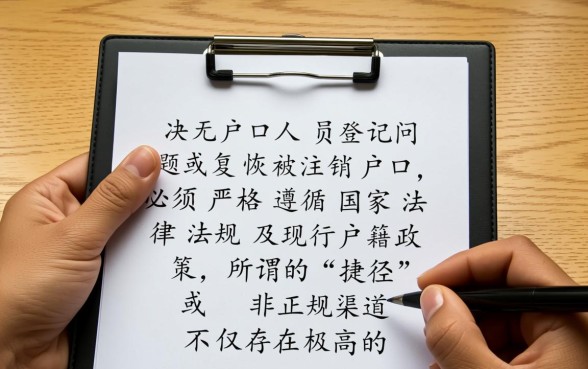 决无户口人员登记问
题或复恢被注销户口，
必须严格遵循国家法
律法规及现行户籍政
策，所谓的“捷径”
或 非正规渠道
不仅存在极高的